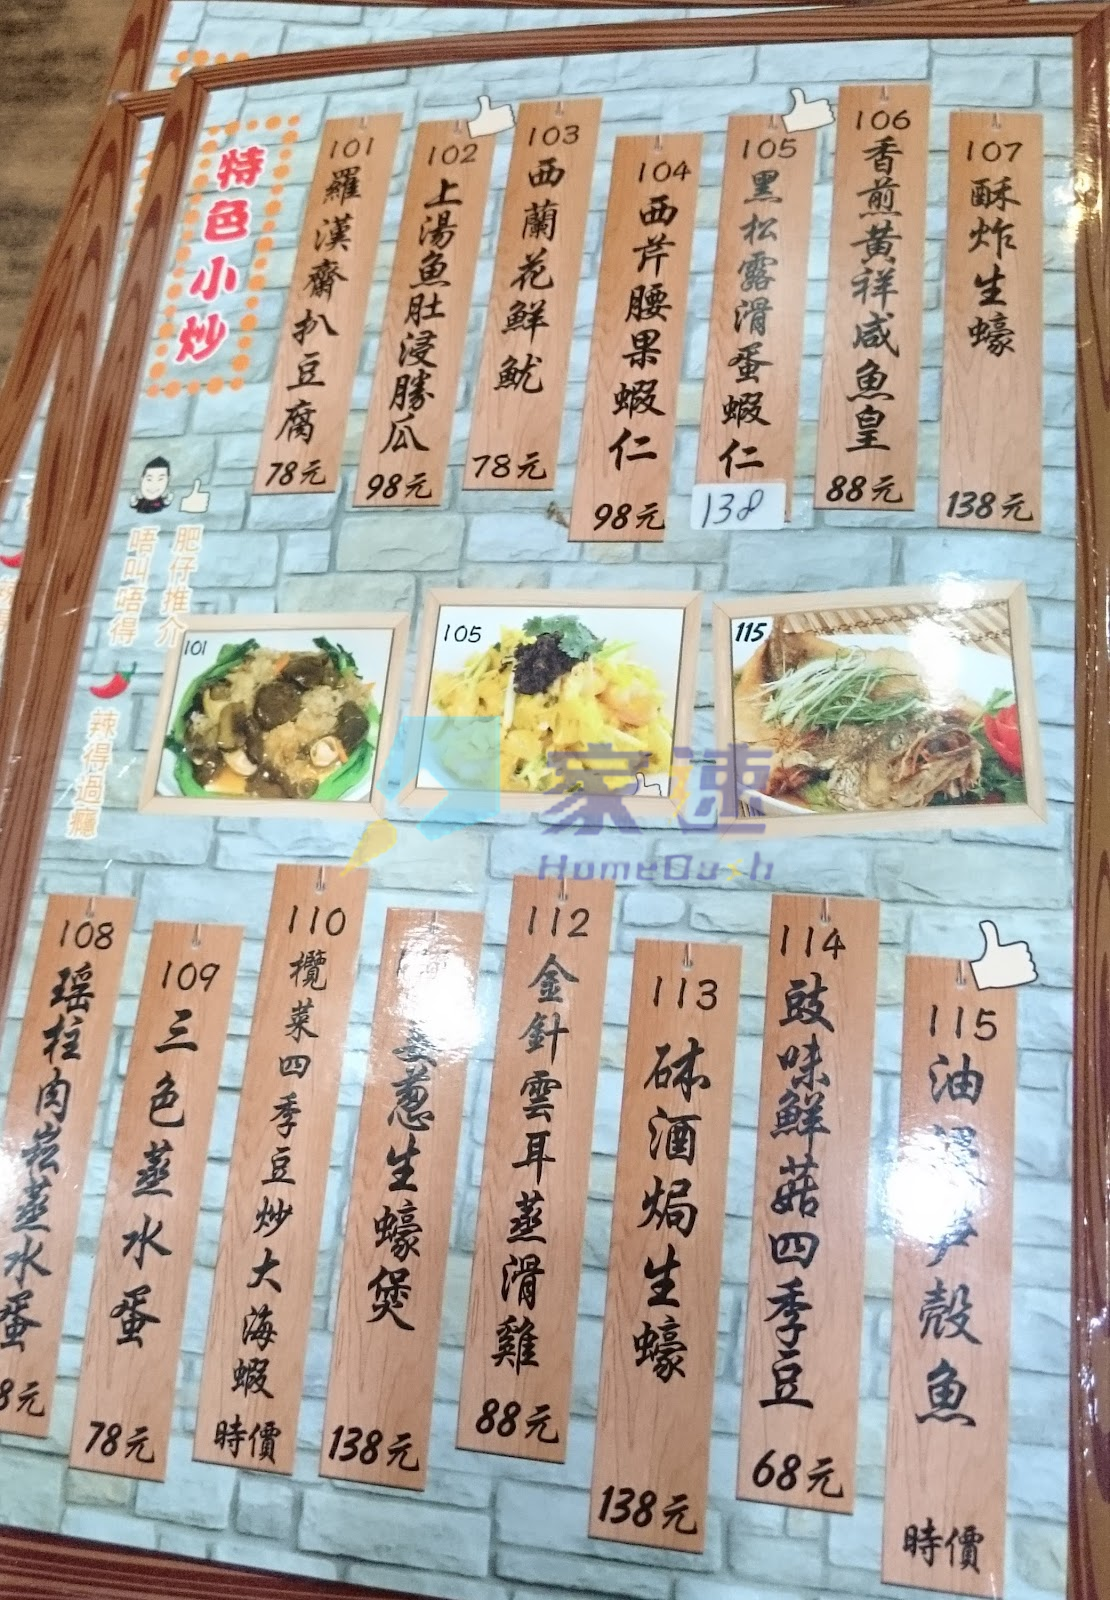 特色小炒
101 羅漢齋扒豆腐 78元
102 上湯魚肚浸勝瓜 98元
103 西蘭花鮮魷 78元
104 西芹腰果蝦仁 98元
105 黑松露滑蛋蝦仁 138
106 香煎黃祥咸魚皇 88元
107 酥炸生蠔 138元
肥仔推介
唔叫唔得
辣得過癮
101
105
115
家速
HomeDash
108 瑶柱肉崧蒸水蛋 8元
109 三色蒸水蛋 78元
110 欖菜四季豆炒大海蝦 時價
葱生蠔煲 138元
112 金針雲耳蒸滑雞 88元
113 砵酒焗生蠔 138元
114 豉味鮮菇四季豆 68元
115 油殼魚 時價